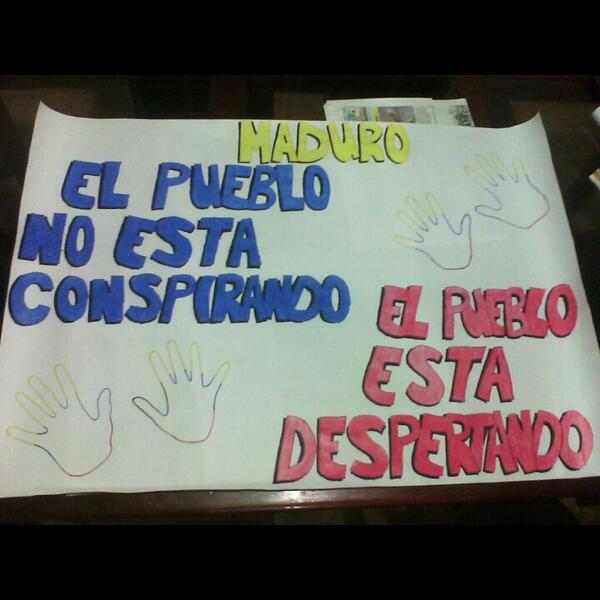 MADURO
EL PUEBLO
NO ESTA
CONSPIRANDO
EL PUEBLO
ESTA
DESPERTANDO